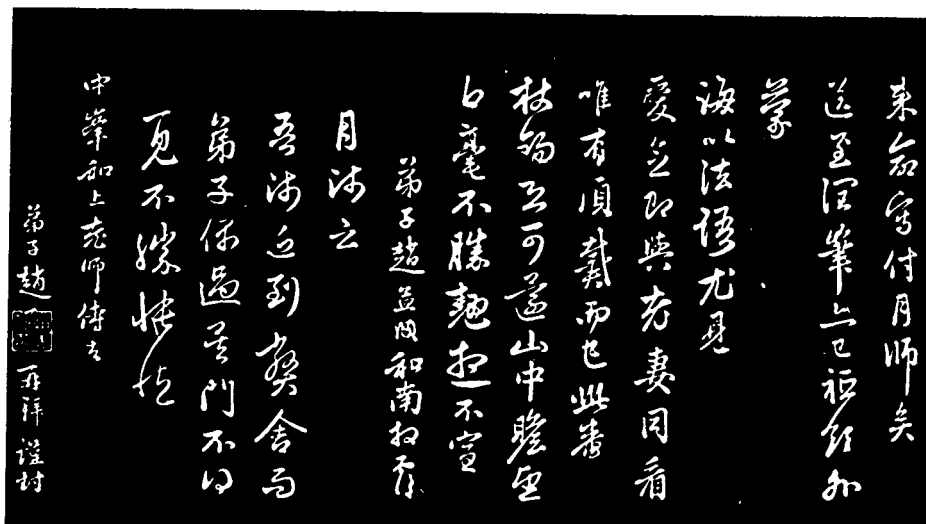 來命寫付月師矣
送至潤筆亦已祗領外
蒙
誨以法語尤見
愛念即與老妻同看
唯有頂戴而已此番
杖錫可還山中瞻望
白毫不勝馳想不宣
弟子趙孟頫和南拜覆
月師云
吾師近到弊舍而
弟子偶過吳門不得
一見不勝悵
中峯和上老師侍者
弟子趙 再拜謹封